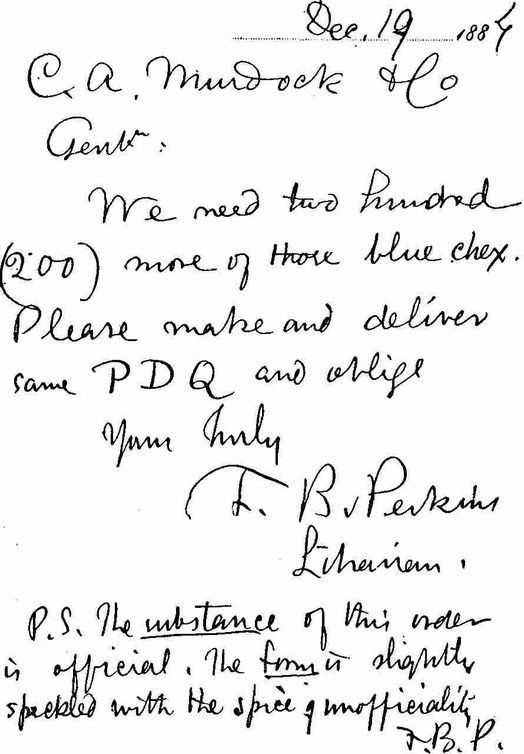 Dec. 19 1884
C. A. Murdock & Co
Gentn.
We need two hundred
(200) more of those blue chex.
Please make and deliver
same PDQ and oblige
Yours truly
F. B. Perkins
Librarian.
P.S. The substance of this order
is official. The form is slightly
speckled with the spice of unofficiality
F.B.P.